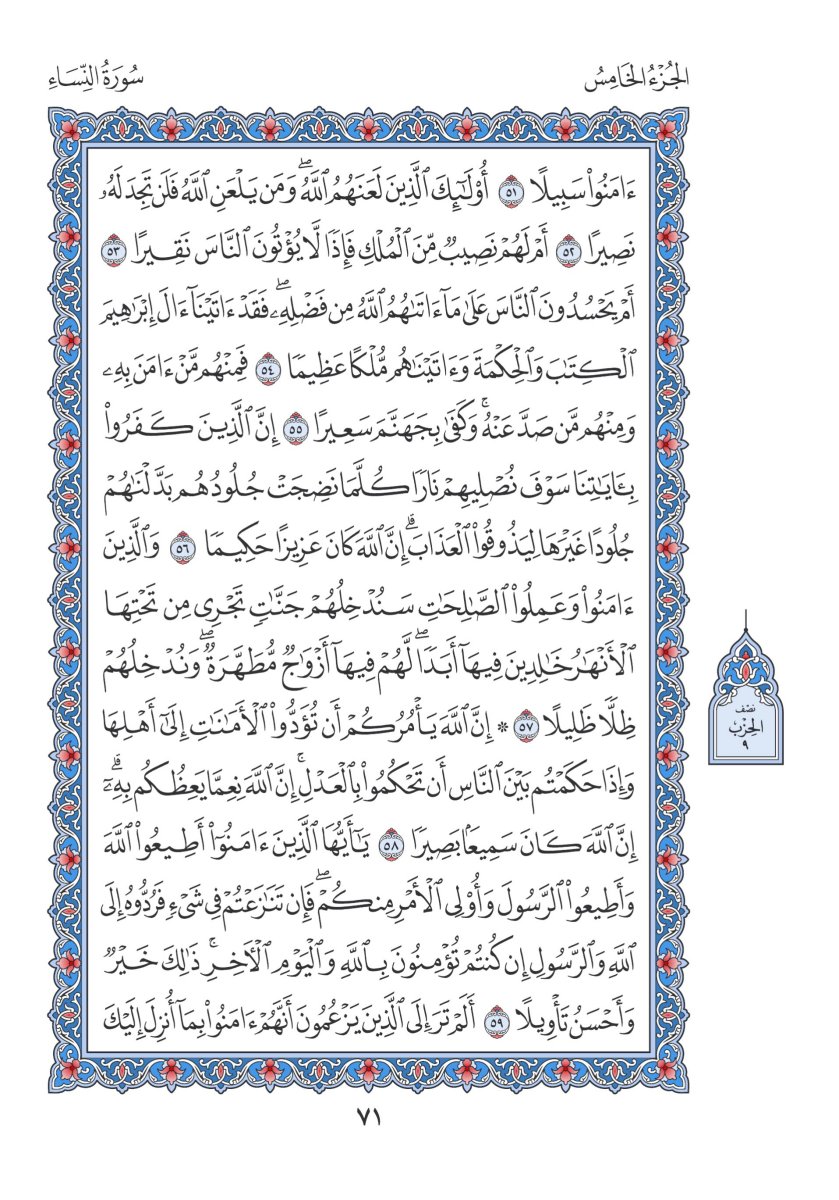 الجُزْءُ الخَامِسُ
سُورَةُ النِّسَاءِ
ءَامَنُوا۟ سَبِيلًا ٥١ أُو۟لَٰٓئِكَ ٱلَّذِينَ لَعَنَهُمُ ٱللَّهُۖ وَمَن يَلْعَنِ ٱللَّهُ فَلَن تَجِدَ لَهُۥ
نَصِيرًا ٥٢ أَمْ لَهُمْ نَصِيبٌ مِّنَ ٱلْمُلْكِ فَإِذًا لَّا يُؤْتُونَ ٱلنَّاسَ نَقِيرًا ٥٣
أَمْ يَحْسُدُونَ ٱلنَّاسَ عَلَىٰ مَآ ءَاتَىٰهُمُ ٱللَّهُ مِن فَضْلِهِۦۖ فَقَدْ ءَاتَيْنَآ ءَالَ إِبْرَٰهِيمَ
ٱلْكِتَٰبَ وَٱلْحِكْمَةَ وَءَاتَيْنَٰهُم مُّلْكًا عَظِيمًا ٥٤ فَمِنْهُم مَّنْ ءَامَنَ بِهِۦ
وَمِنْهُم مَّن صَدَّ عَنْهُۚ وَكَفَىٰ بِجَهَنَّمَ سَعِيرًا ٥٥ إِنَّ ٱلَّذِينَ كَفَرُوا۟
بِـَٔايَٰتِنَا سَوْفَ نُصْلِيهِمْ نَارًا كُلَّمَا نَضِجَتْ جُلُودُهُم بَدَّلْنَٰهُمْ
جُلُودًا غَيْرَهَا لِيَذُوقُوا۟ ٱلْعَذَابَۗ إِنَّ ٱللَّهَ كَانَ عَزِيزًا حَكِيمًا ٥٦ وَٱلَّذِينَ
ءَامَنُوا۟ وَعَمِلُوا۟ ٱلصَّٰلِحَٰتِ سَنُدْخِلُهُمْ جَنَّٰتٍ تَجْرِى مِن تَحْتِهَا
ٱلْأَنْهَٰرُ خَٰلِدِينَ فِيهَآ أَبَدًاۖ لَّهُمْ فِيهَآ أَزْوَٰجٌ مُّطَهَّرَةٌۖ وَنُدْخِلُهُمْ
ظِلًّا ظَلِيلًا ٥٧ ۞ إِنَّ ٱللَّهَ يَأْمُرُكُمْ أَن تُؤَدُّوا۟ ٱلْأَمَٰنَٰتِ إِلَىٰٓ أَهْلِهَا
وَإِذَا حَكَمْتُم بَيْنَ ٱلنَّاسِ أَن تَحْكُمُوا۟ بِٱلْعَدْلِۚ إِنَّ ٱللَّهَ نِعِمَّا يَعِظُكُم بِهِۦٓۗ
إِنَّ ٱللَّهَ كَانَ سَمِيعًۢا بَصِيرًا ٥٨ يَٰٓأَيُّهَا ٱلَّذِينَ ءَامَنُوٓا۟ أَطِيعُوا۟ ٱللَّهَ
وَأَطِيعُوا۟ ٱلرَّسُولَ وَأُو۟لِى ٱلْأَمْرِ مِنكُمْۖ فَإِن تَنَٰزَعْتُمْ فِى شَىْءٍ فَرُدُّوهُ إِلَى
ٱللَّهِ وَٱلرَّسُولِ إِن كُنتُمْ تُؤْمِنُونَ بِٱللَّهِ وَٱلْيَوْمِ ٱلْءَاخِرِۚ ذَٰلِكَ خَيْرٌ
وَأَحْسَنُ تَأْوِيلًا ٥٩ أَلَمْ تَرَ إِلَى ٱلَّذِينَ يَزْعُمُونَ أَنَّهُمْ ءَامَنُوا۟ بِمَآ أُنزِلَ إِلَيْكَ
نصف
الحِزْب
٩
٧١